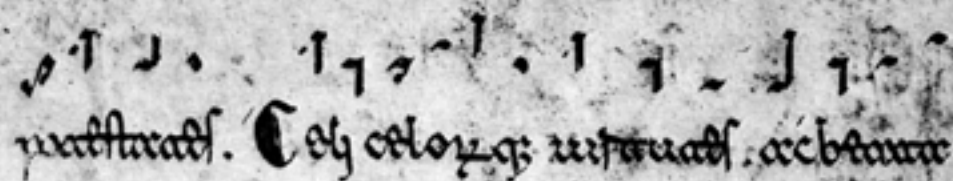 potestates. Celi celoꝝqꝫ uirtutes. ac beata